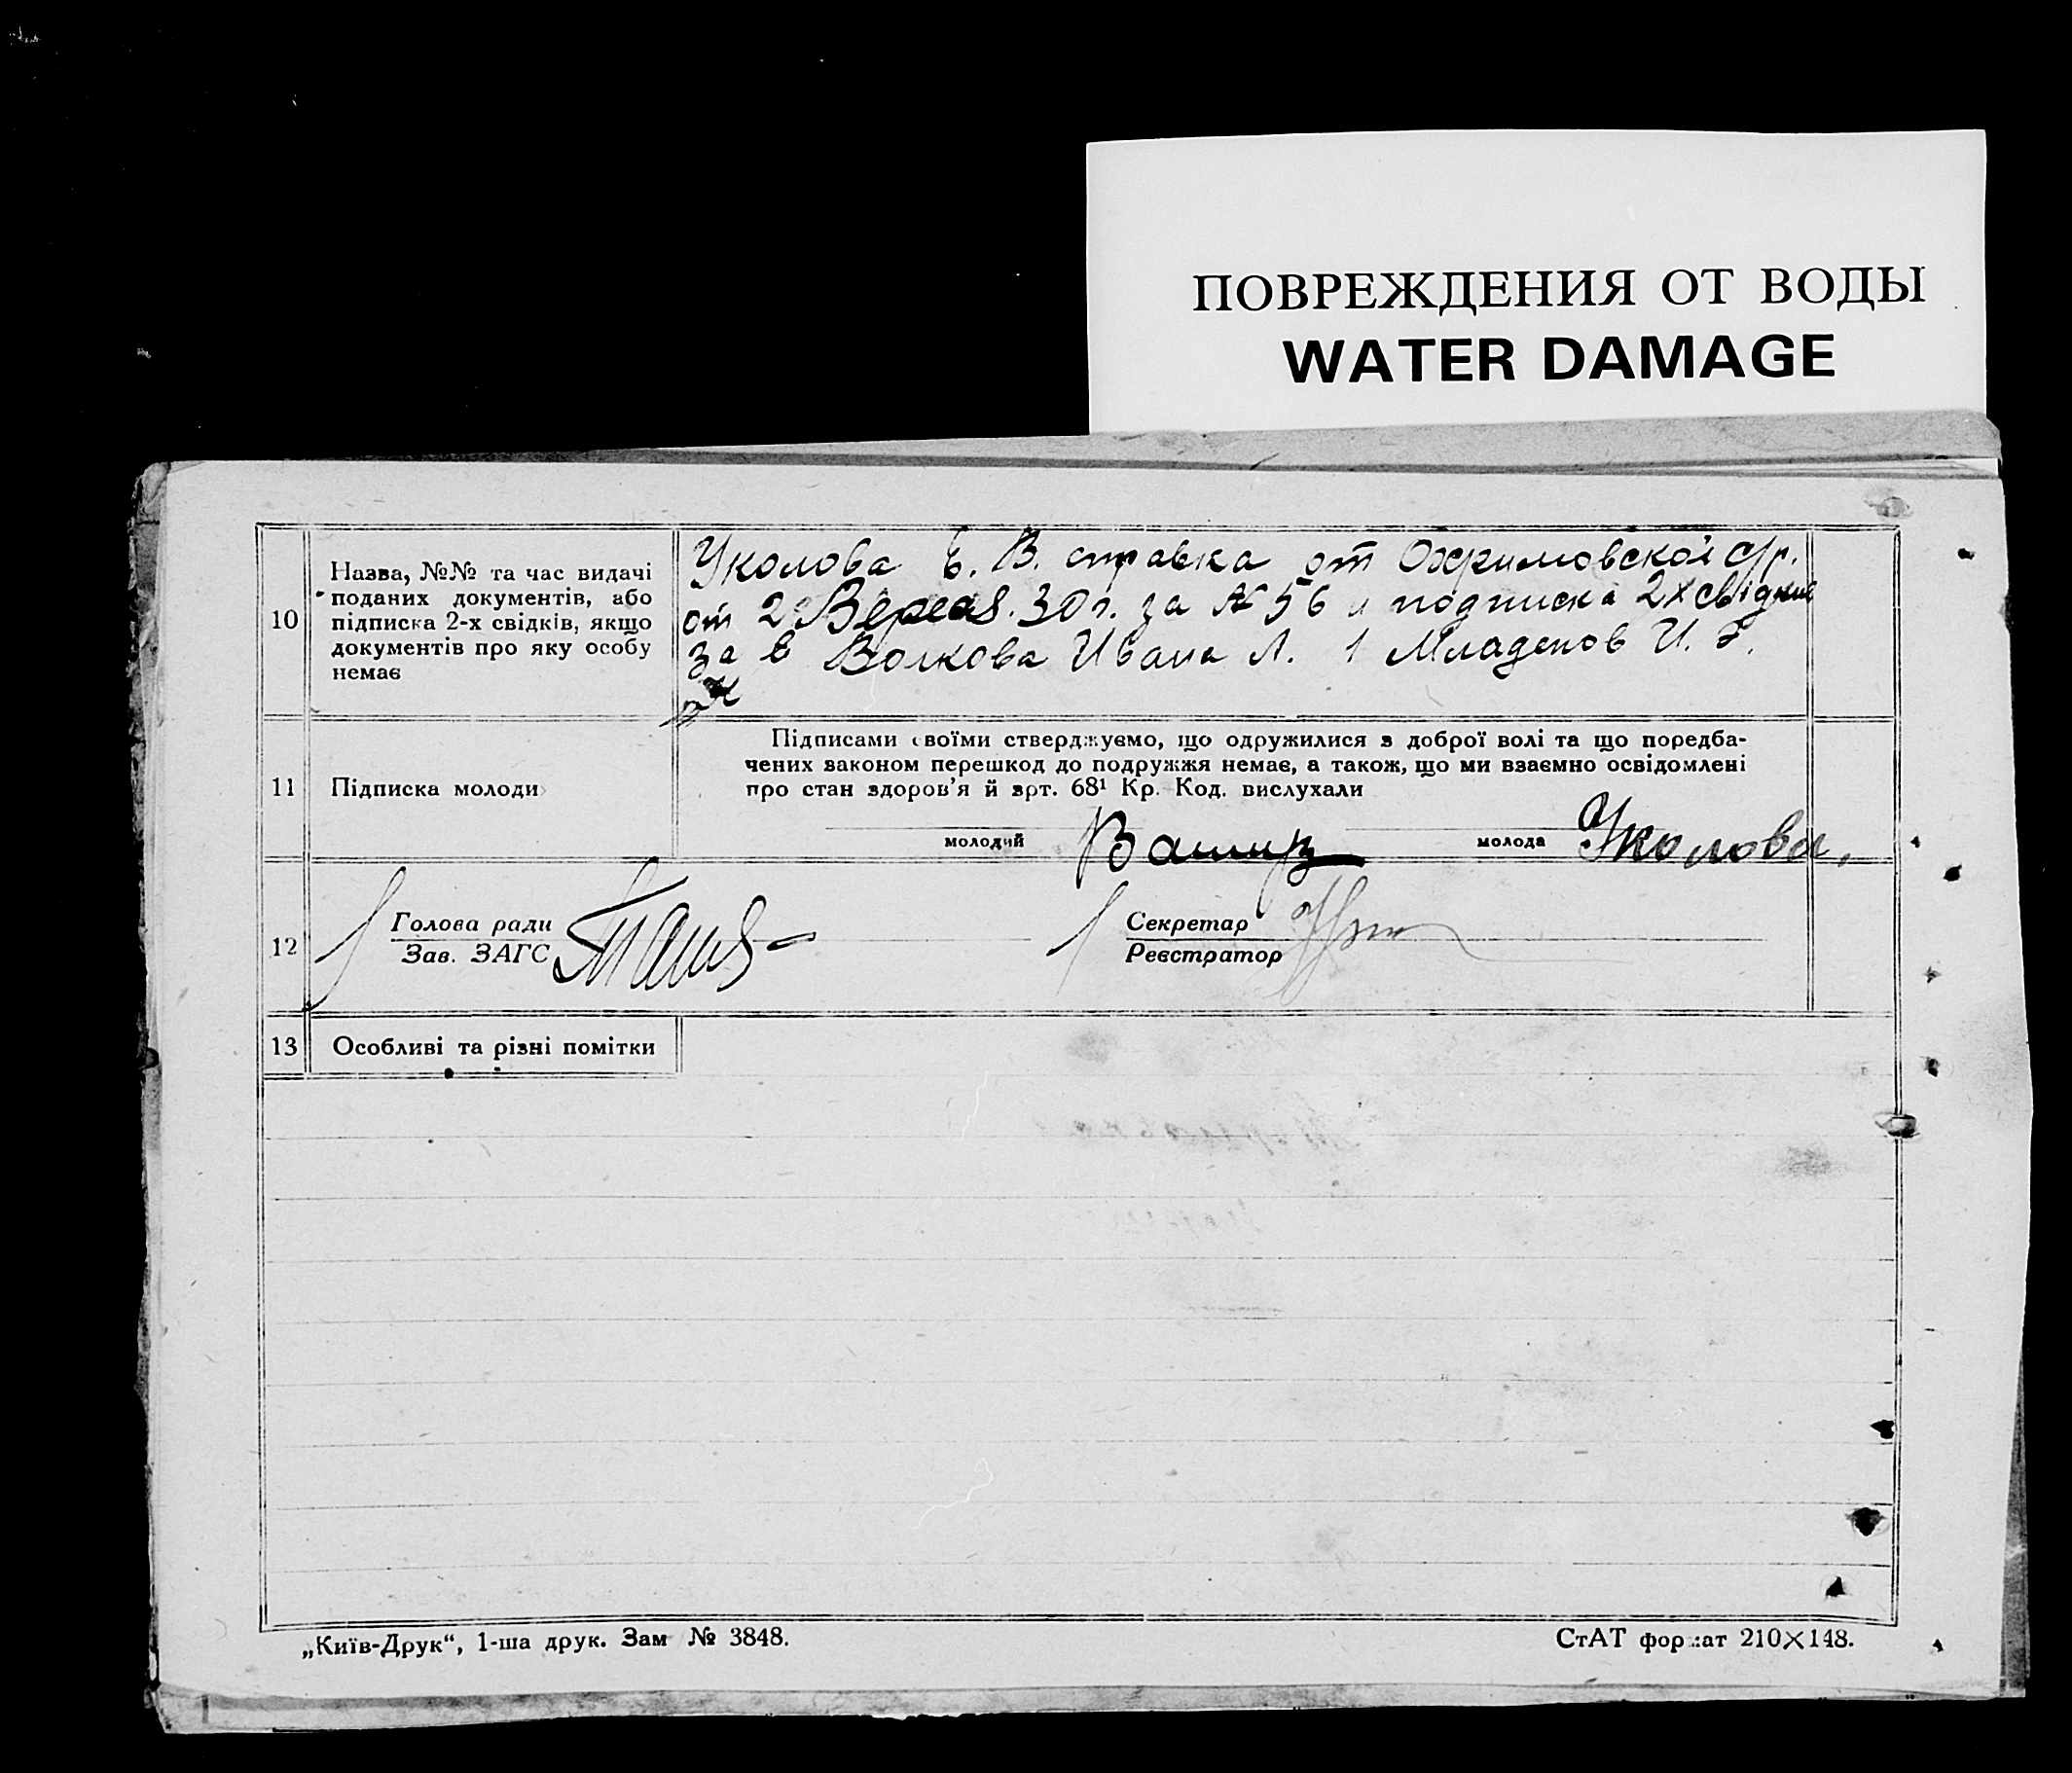 ПОВРЕЖДЕНИЯ ОТ ВОДЫ
WATER DAMAGE
10
Назва, №№ та час видачі
поданих документів, або
підписка 2-х свідків, якщо
документів про яку особу
немає
Уколова Е. В. справка от Охримовской с/р.
от 2 Верес. 30 г. за № 56 и подписка 2х свідків
за Волкова Ивана Л. 1 Младенов И. Г.
11
Підписка молоди
Підписами своїми стверджуємо, що одружилися з доброї волі та що поредба-
чених законом перешкод до подружжя немає, а також, що ми взаємно освідомлені
про стан здоров'я й арт. 68¹ Кр. Код. вислухали
молодий
молода Уколова.
12
Голова ради
Зав. ЗАГС
Секретар
Реєстратор
13
Особливі та різні помітки
„Київ-Друк“, 1-ша друк. Зам № 3848.
СтАТ формат 210×148.